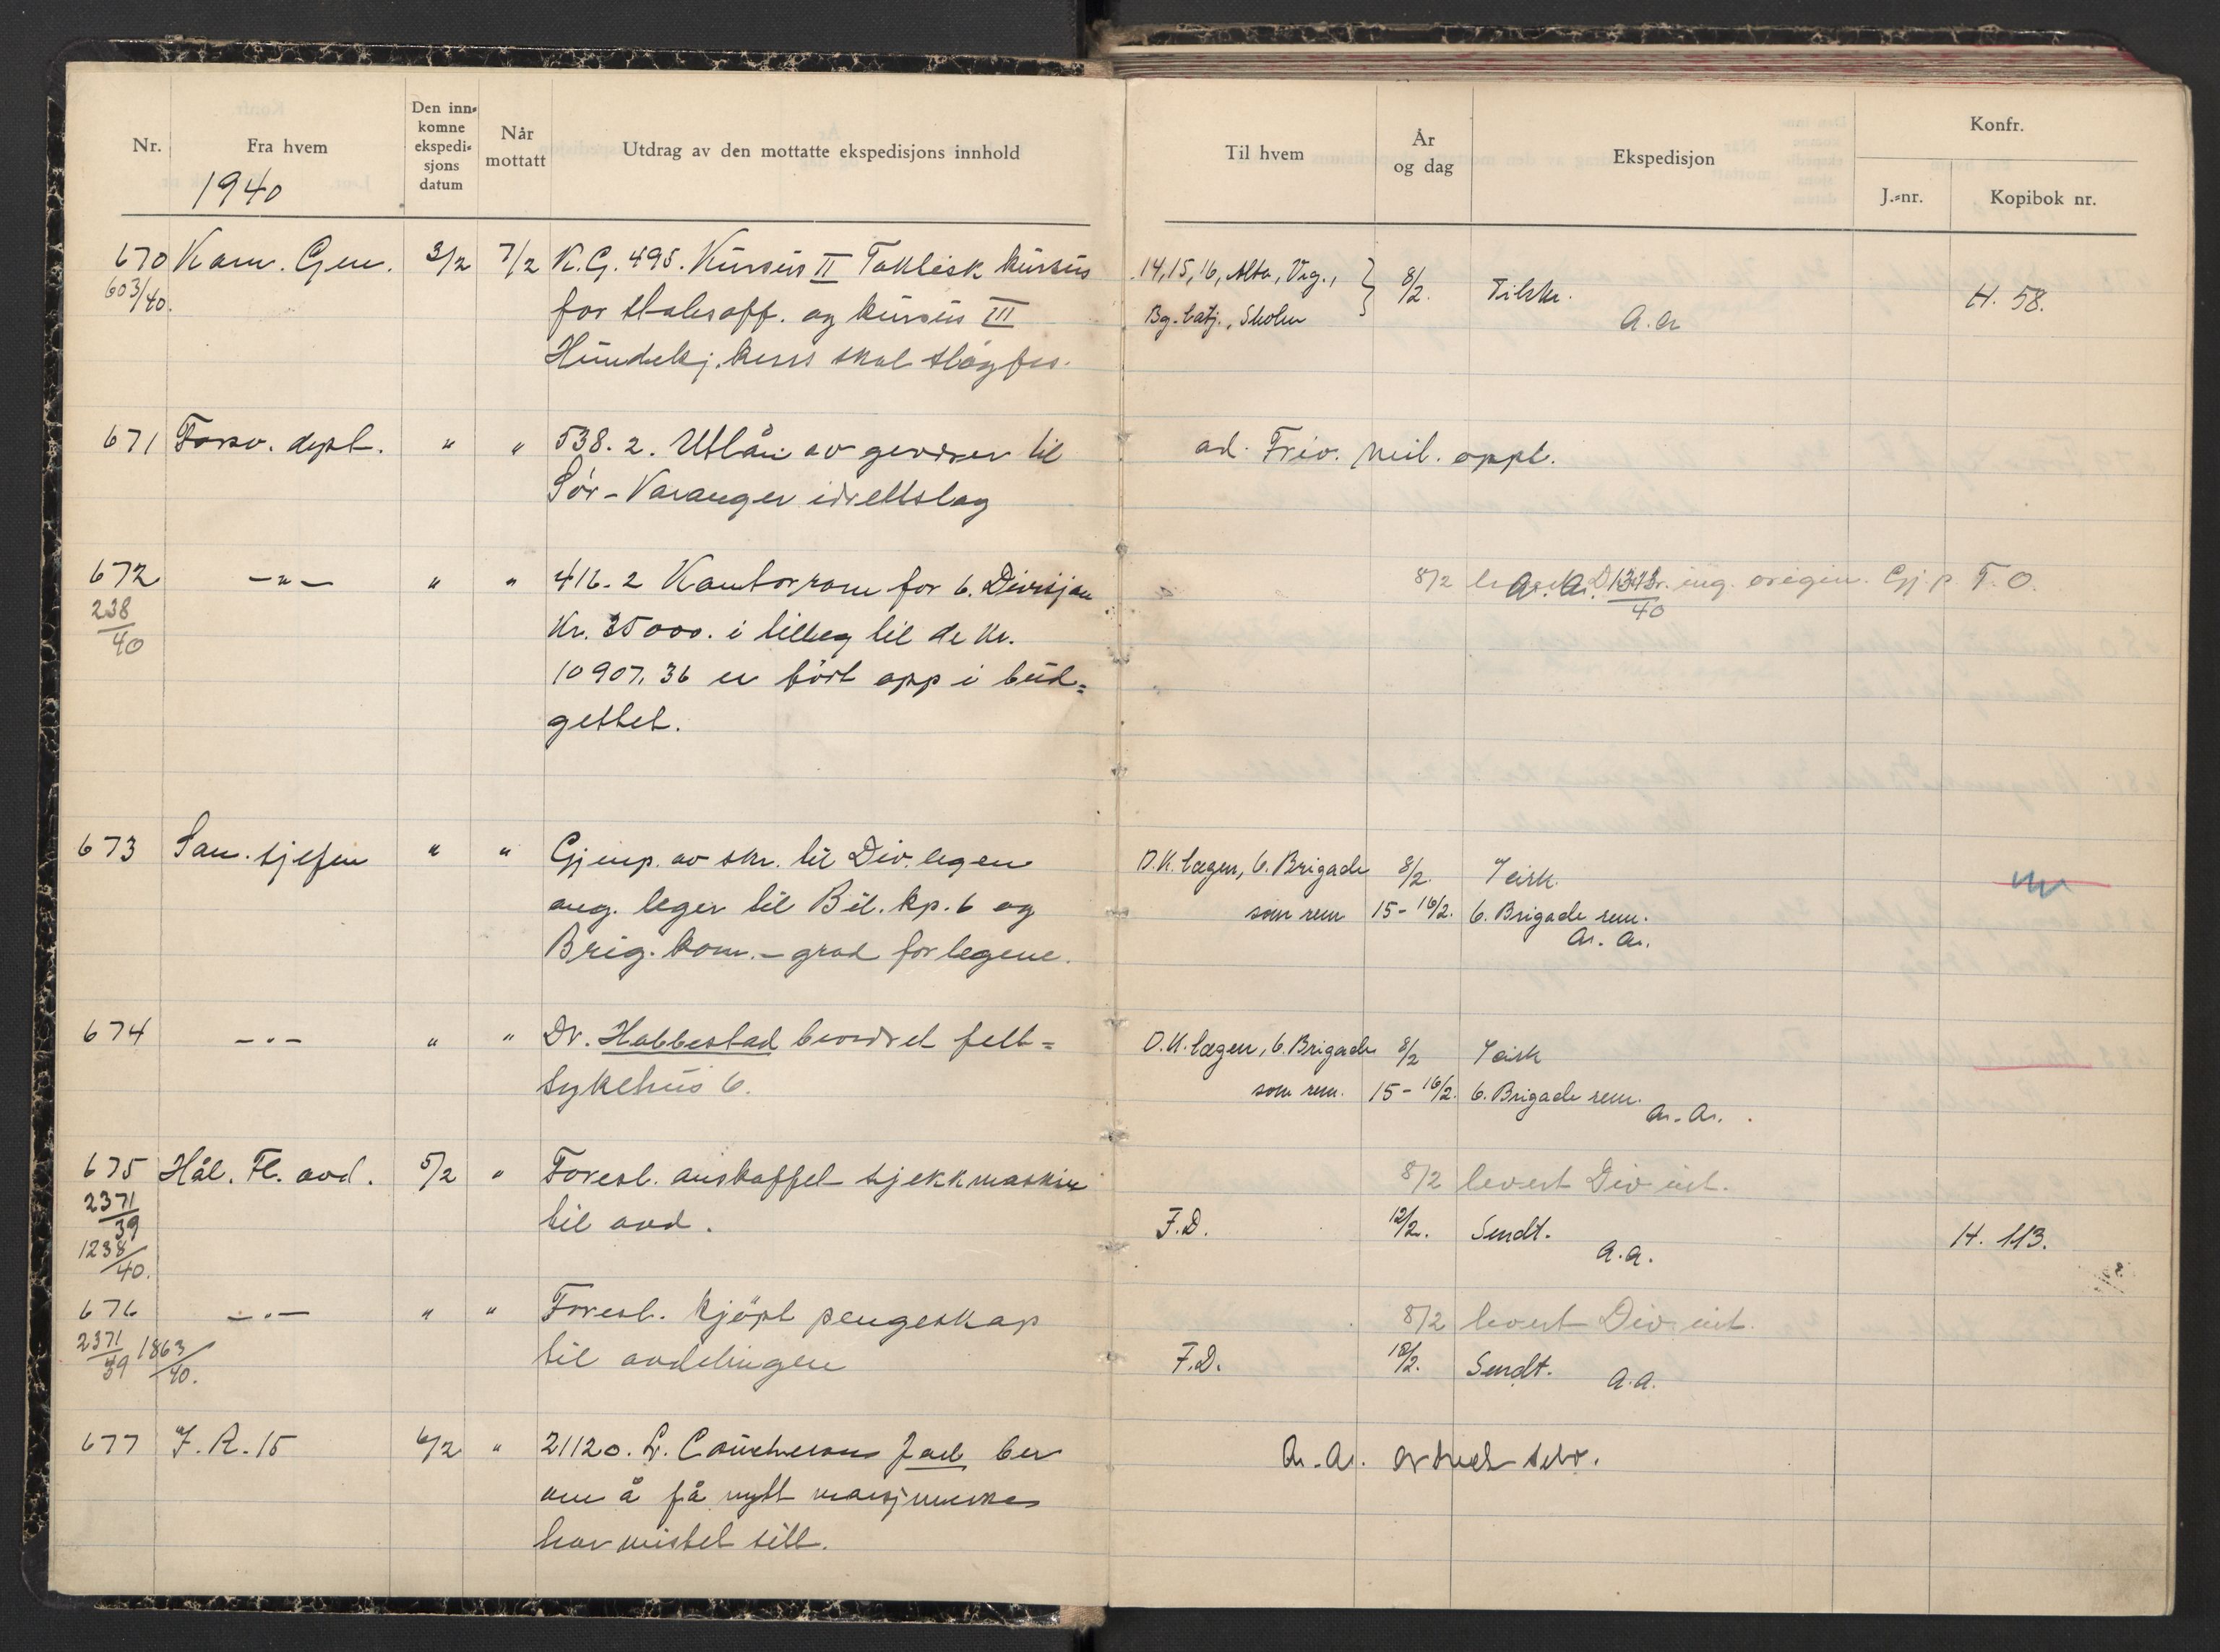 Nr.
Fra hvem
Den inn-
komne
ekspedi-
sjons
datum
Når
mottatt
Utdrag av den mottatte ekspedisjons innhold
1940
670 Kom. Gen. 3/2 7/2 K.G. 495. Kursus II Taktisk kursus
603/40. for stabsoff. og kursus III
Hundekj. kurs skal sløyfes.
671 Forsv. dept. " " 538.2. Utlån av geværer til
Sör-Varanger idrettslag
672 -"- " " 416.2 Kontorrom for 6. Divisjon
238/40 Kr. 35000. i tillegg til de kr.
10907,36 er fört opp i bud=
gettet.
673 San. sjefen " " Gjenp. av skr. til Div. legen
ang. leger til Bil. kp. 6 og
Brig. kom. - grad for legene.
674 -"- " " Dr. Habbestad beordret felt=
sykehus 6.
675 Hål. Fl. avd. 5/2 " Foresl. anskaffet sjekkmaskin
2371/39 til avd.
1238/40.
676 -"- " " Foresl. kjöpt pengeskap
2371/39 1863/40. til avdelingen
677 I.R. 15 6/2 " 21120. L. Jael ber
om å få nytt marsjmerke
har mistet sitt.
Til hvem
År
og dag
Ekspedisjon
Konfr.
J.-nr.
Kopibok nr.
14, 15, 16, Alta, Vrg., } 8/2. Tilskr. H. 58.
Bg. batj., Skolen
a.a
ad. Friv. mil. oppl.
8/2 a.a. ing. origin. Gj. p. T.O.
40
D.K. lægen, 6. Brigade 8/2.
som rem 15-16/2. 6. Brigade rem.
a.a.
D.K. lægen, 6. Brigade 8/2
som rem. 15-16/2. 6. Brigade rem.
a.a.
8/2 levert Div int.
F.D. 12/2. Sendt. H. 113.
a.a.
8/2 levert Div. int.
F.D. 18/2. Sendt.
a.a.
a.a.